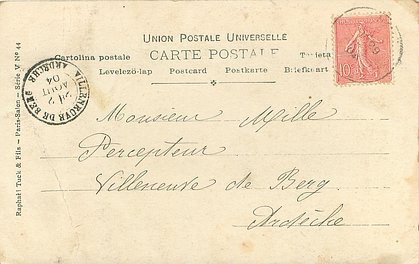 UNION POSTALE UNIVERSELLE
CARTE POSTALE
Cartolina postale
Levelező-lap Postcard Postkarte Briefkaart
Raphael Tuck & Fils – Paris-Salon – Série V N° 44
VILLENEUVE DE BERG
ARDÈCHE
2
AOUT
04
10
Monsieur Mille
Percepteur
Villeneuve de Berg
Ardèche